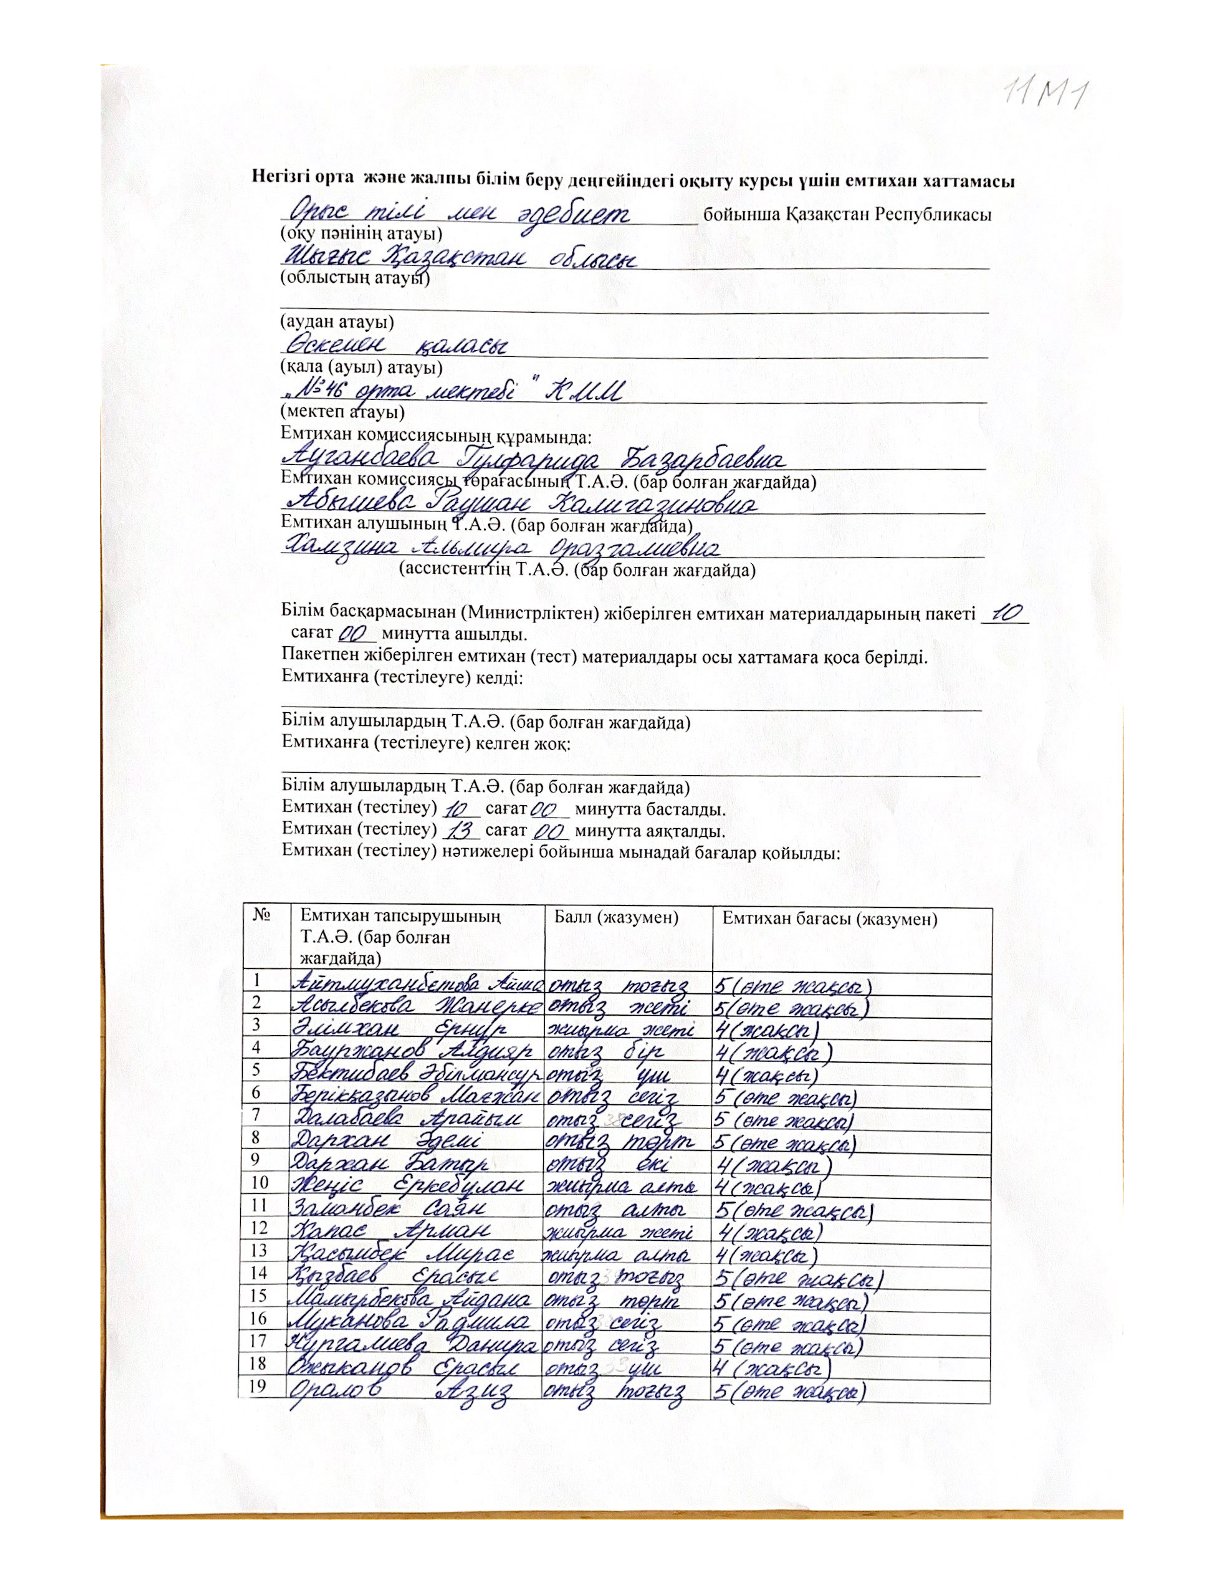 11М1
Негізгі орта және жалпы білім беру деңгейіндегі оқыту курсы үшін емтихан хаттамасы
Орыс тілі мен әдебиет бойынша Қазақстан Республикасы
(оқу пәнінің атауы)
Шығыс Қазақстан облысы
(облыстың атауы)
(аудан атауы)
Өскемен қаласы
(қала (ауыл) атауы)
„№46 орта мектебі" КММ
(мектеп атауы)
Емтихан комиссиясының құрамында:
Ауганбаева Гулфарида Базарбаевна
Емтихан комиссиясы төрағасының Т.А.Ә. (бар болған жағдайда)
Абышева Раушан Калигазиновна
Емтихан алушының Т.А.Ә. (бар болған жағдайда)
Хамзина Альмира Оразгалиевна
(ассистенттің Т.А.Ә. (бар болған жағдайда)
Білім басқармасынан (Министрліктен) жіберілген емтихан материалдарының пакеті 10
сағат 00 минутта ашылды.
Пакетпен жіберілген емтихан (тест) материалдары осы хаттамаға қоса берілді.
Емтиханға (тестілеуге) келді:
Білім алушылардың Т.А.Ә. (бар болған жағдайда)
Емтиханға (тестілеуге) келген жоқ:
Білім алушылардың Т.А.Ә. (бар болған жағдайда)
Емтихан (тестілеу) 10 сағат 00 минутта басталды.
Емтихан (тестілеу) 13 сағат 00 минутта аяқталды.
Емтихан (тестілеу) нәтижелері бойынша мынадай бағалар қойылды:
№ Емтихан тапсырушының Балл (жазумен) Емтихан бағасы (жазумен)
Т.А.Ә. (бар болған
жағдайда)
1 Айтмуханбетова Айша отыз тоғыз 5 (өте жақсы)
2 Асылбекова Жанерке отыз жеті 5 (өте жақсы)
3 Әлімхан Ернұр жиырма жеті 4 (жақсы)
4 Бауржанов Алдияр отыз бір 4 (жақсы)
5 Бектибаев Әбілмансұр отыз үш 4 (жақсы)
6 Берікқазынов Мағжан отыз сегіз 5 (өте жақсы)
7 Далабаева Арайым отыз сегіз 5 (өте жақсы)
8 Дархан Әделі отыз төрт 5 (өте жақсы)
9 Дархан Батыр отыз екі 4 (жақсы)
10 Жеңіс Еркебұлан жиырма алты 4 (жақсы)
11 Заманбек Саян отыз алты 5 (өте жақсы)
12 Капас Арман жиырма жеті 4 (жақсы)
13 Қасымбек Мирас жиырма алты 4 (жақсы)
14 Қызбаев Ерасыл отыз тоғыз 5 (өте жақсы)
15 Мамырбекова Айдана отыз төрт 5 (өте жақсы)
16 Муканова Радмила отыз сегіз 5 (өте жақсы)
17 Нургалиева Данира отыз сегіз 5 (өте жақсы)
18 Ожыканов Ерасыл отыз үш 4 (жақсы)
19 Оралов Азиз отыз тоғыз 5 (өте жақсы)